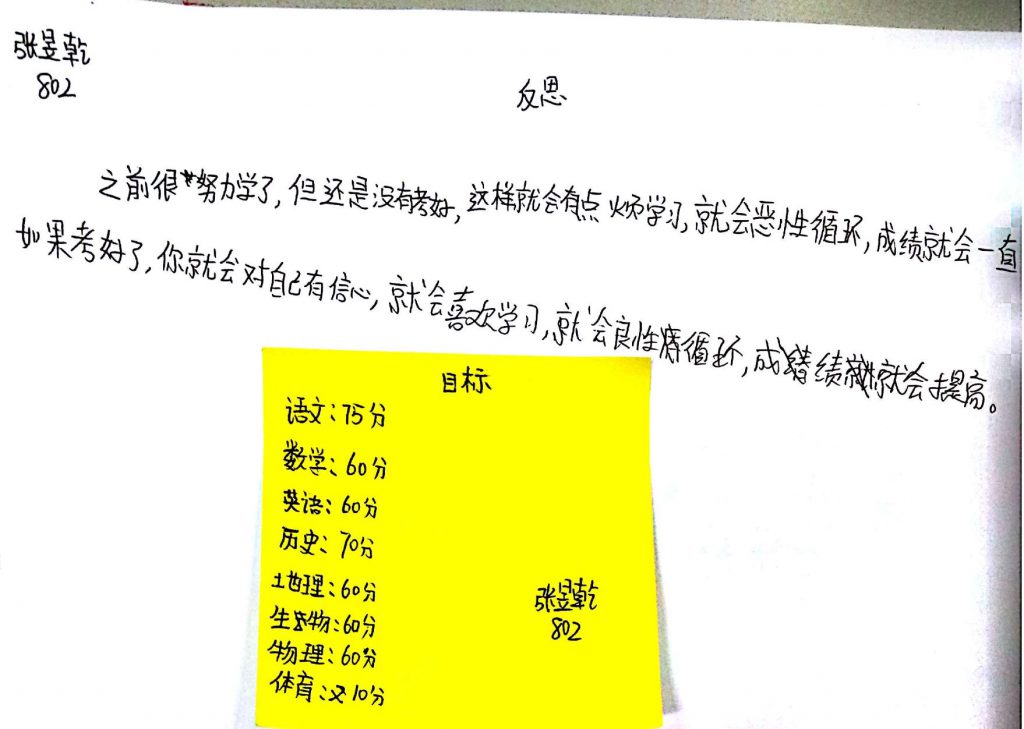 张昱乾
802
反思
之前很努力学了,但还是没有考好,这样就会有点烦学习,就会恶性循环,成绩就会一直
如果考好了,你就会对自己有信心,就会喜欢学习,就会良性循环,成绩就会提高。
目标
语文:75分
数学:60分
英语:60分
历史:70分
地理:60分
生物:60分
物理:60分
体育:10分
张昱乾
802